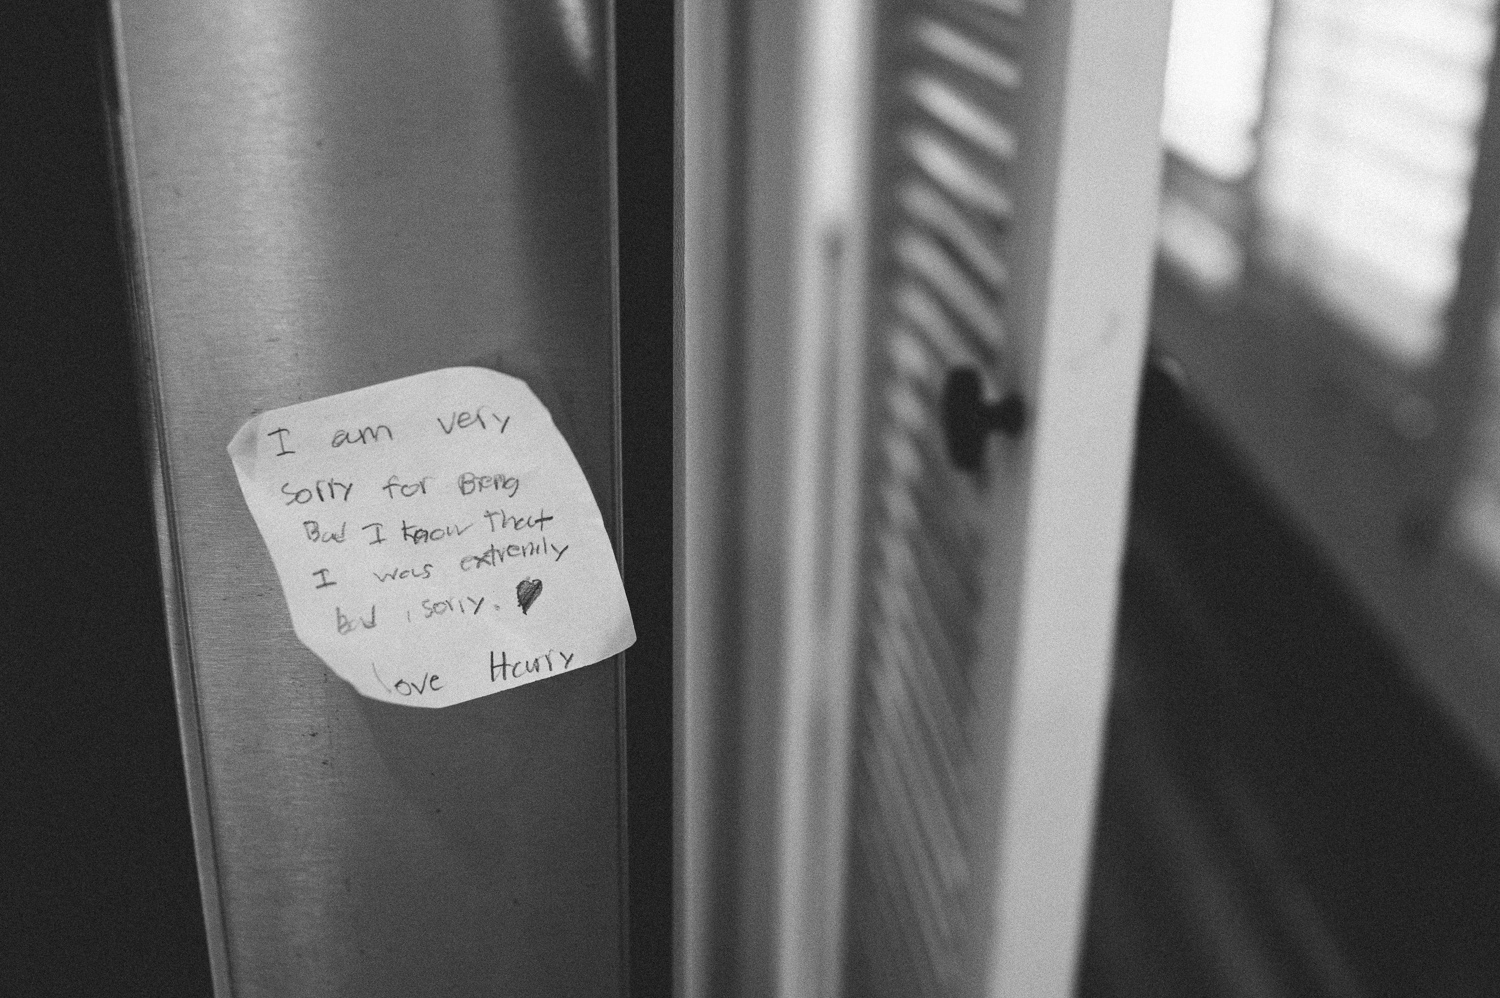 I am very
sorry for Being
Bad I know that
I was extremly
bad , sorry. ♥
love Harry